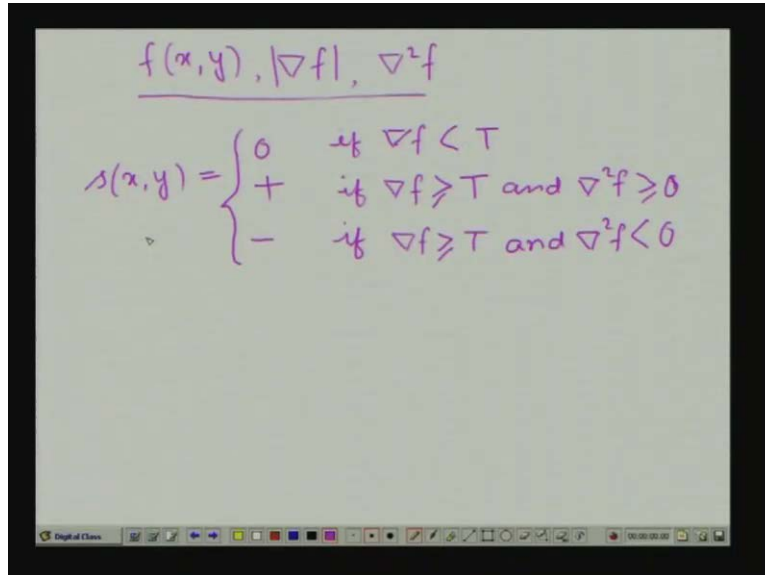 f(x,y), |∇f|, ∇²f
s(x,y) = { 0 if ∇f < T
+ if ∇f ⩾ T and ∇²f ⩾ 0
− if ∇f ⩾ T and ∇²f < 0
Digital Class 00:00:00:00